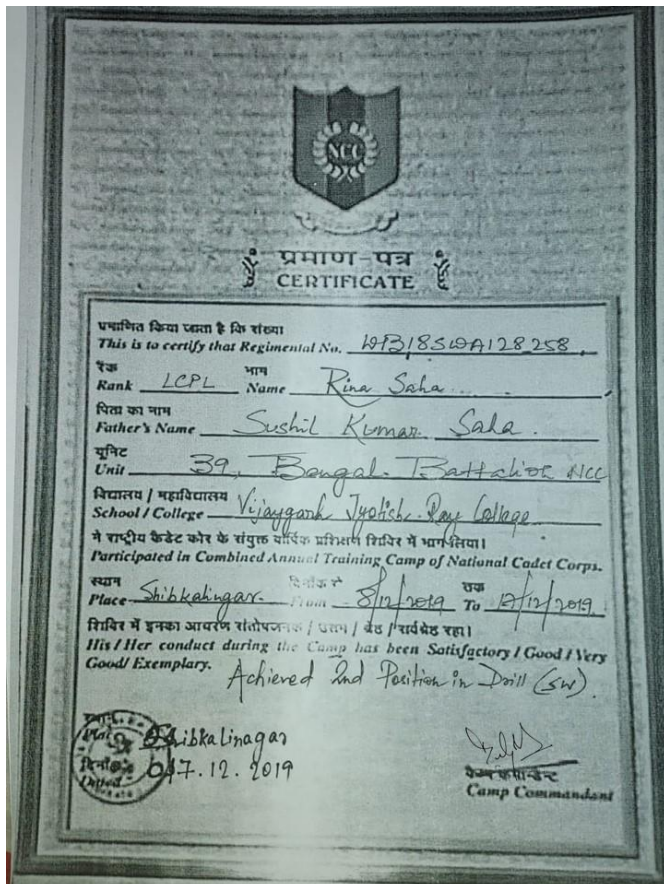 NCC
प्रमाण-पत्र
CERTIFICATE
प्रमाणित किया जाता है कि संख्या
This is to certify that Regimental No. WB18SWA128258
रैंक नाम
Rank LCPL Name Rina Saha
पिता का नाम
Father's Name Sushil Kumar Saha
यूनिट
Unit 39, Bengal Battalion NCC
विद्यालय / महाविद्यालय
School / College Vijaygarh Jyotish Ray College
ने राष्ट्रीय कैडेट कोर के संयुक्त वार्षिक प्रशिक्षण शिविर में भाग लिया।
Participated in Combined Annual Training Camp of National Cadet Corps.
स्थान दिनाँक से तक
Place Shibkalinagar From 8/12/2019 To 17/12/2019
शिविर में इनका आचरण संतोषजनक / उत्तम / श्रेष्ठ / सर्वश्रेष्ठ रहा।
His / Her conduct during the Camp has been Satisfactory / Good / Very
Good / Exemplary.
Achieved 2nd Position in Drill (SW)
Shibkalinagar
दिनाँक
Dated 17.12.2019
कैम्प कमान्डेन्ट
Camp Commandant